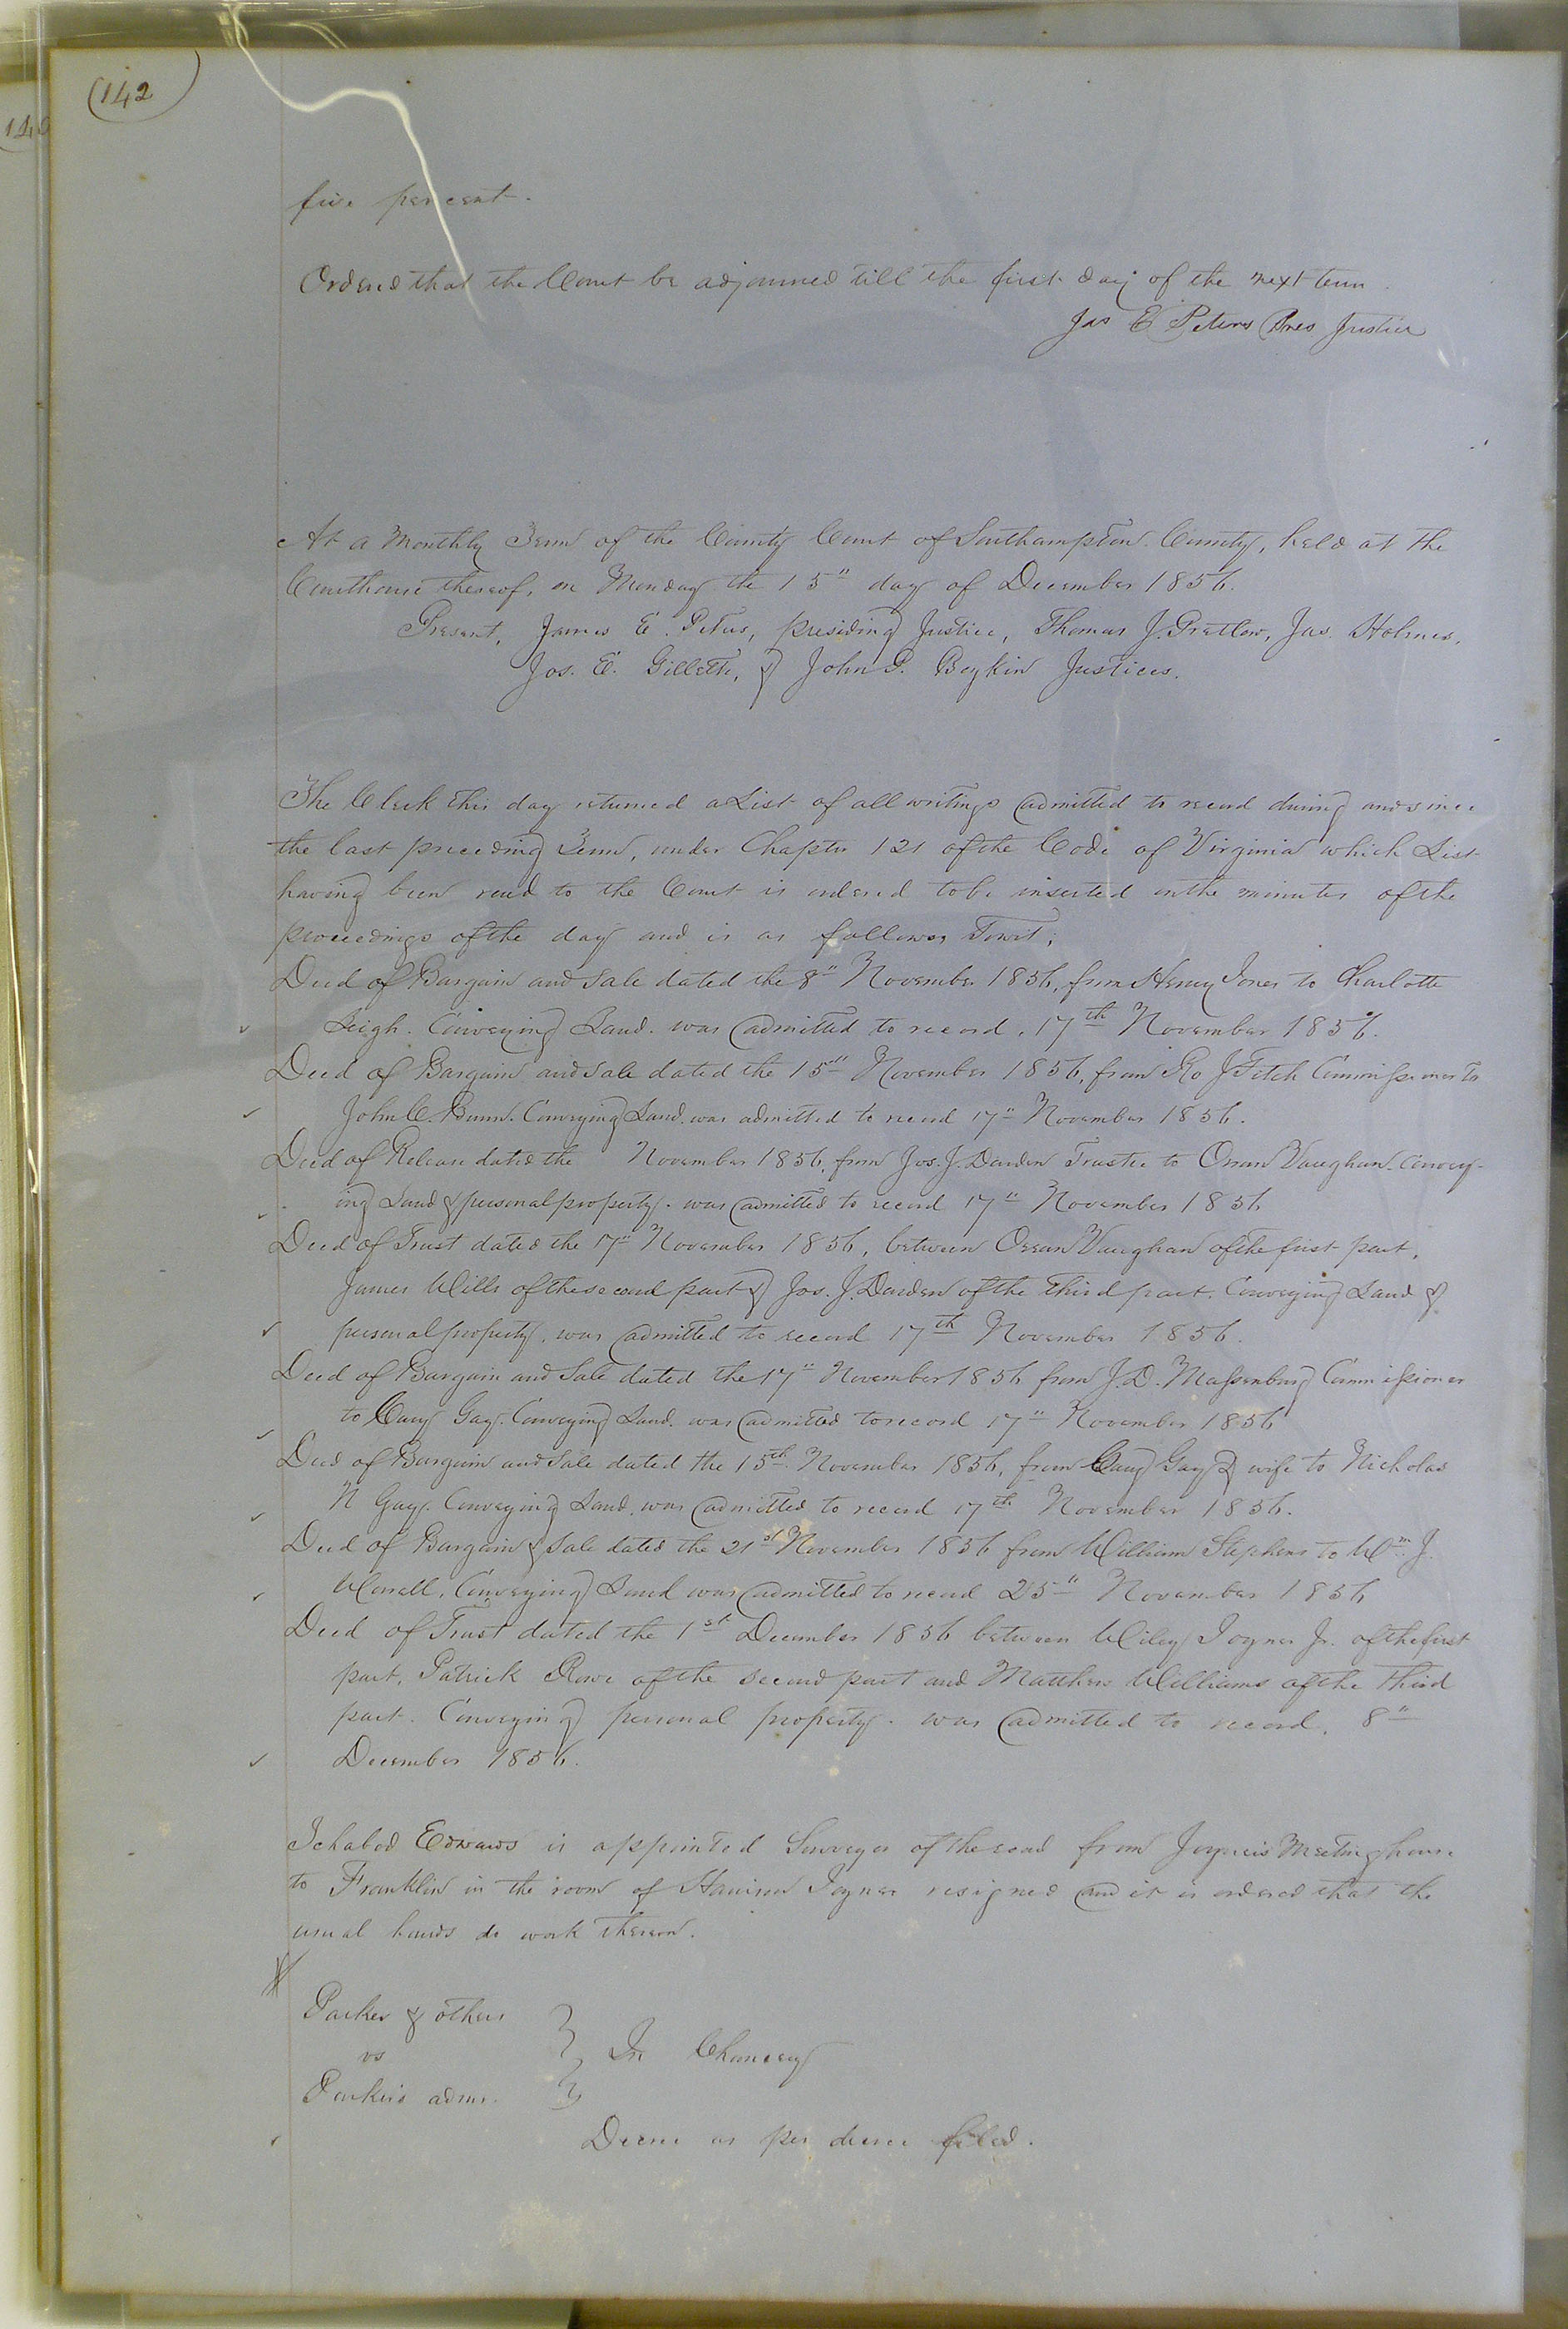 (142
140
five percent.
Ordered that the Court be adjourned till the first day of the next term.
Jas E Peters Pres Justice
At a Monthly Term of the County Court of Southampton County, held at the
Courthouse thereof, on Monday the 15" day of December 1856.
Present, James E. Peters, presiding Justice, Thomas J. Pretlow, Jas. Holmes,
Jos. E. Gillette, & John P. Boykin Justices.
The Clerk this day returned a List of all writings admitted to record during and since
the last preceeding Term, under Chapter 121 of the Code of Virginia which List
having been read to the Court is ordered to be inserted in the minutes of the
proceedings of the day and is as follows, Towit;
Deed of Bargain and Sale dated the 8" November 1856, from Henry Jones to Charlotte
Leigh. Conveying Land. was admitted to record, 17th November 1856.
Deed of Bargain and Sale dated the 15" November 1856, from Ro J Fitch Commissioner to
John C. Bunn. Conveying Land. was admitted to record 17" November 1856.
Deed of Release dated the November 1856, from Jos. J. Darden Trustee to Orran Vaughan. Convey-
ing Land & personal property. was admitted to record 17" November 1856
Deed of Trust dated the 17" November 1856, between Orran Vaughan of the first part,
James Wills of the second part & Jos. J. Darden of the third part. Conveying Land &
personal property. was admitted to record 17th November 1856.
Deed of Bargain and Sale dated the 17" November 1856 from J. D. Massenburg Commissioner
to Cary Gay. Conveying Land. was admitted to record 17" November 1856
Deed of Bargain and Sale dated the 15th November 1856, from Cary Gay & wife to Nicholas
N Gay. Conveying Land. was admitted to record 17th November 1856.
Deed of Bargain & Sale dated the 21st November 1856 from William Stephens to Wm J.
Worrell, Conveying Land was admitted to record 25" November 1856
Deed of Trust dated the 1st December 1856 between Wiley Joyner Jr. of the first
part, Patrick Rowe of the second part and Matthew Williams of the third
part. Conveying personal property. was admitted to record, 8"
December 1856.
Ichabod Edwards is appointed Surveyor of the road from Joyner's Meeting house
to Franklin in the room of Harrison Joyner resigned and it is ordered that the
usual hands do work thereon.
Parker & others
vs
Parker's admr.
In Chancery
Decree as per decree filed.